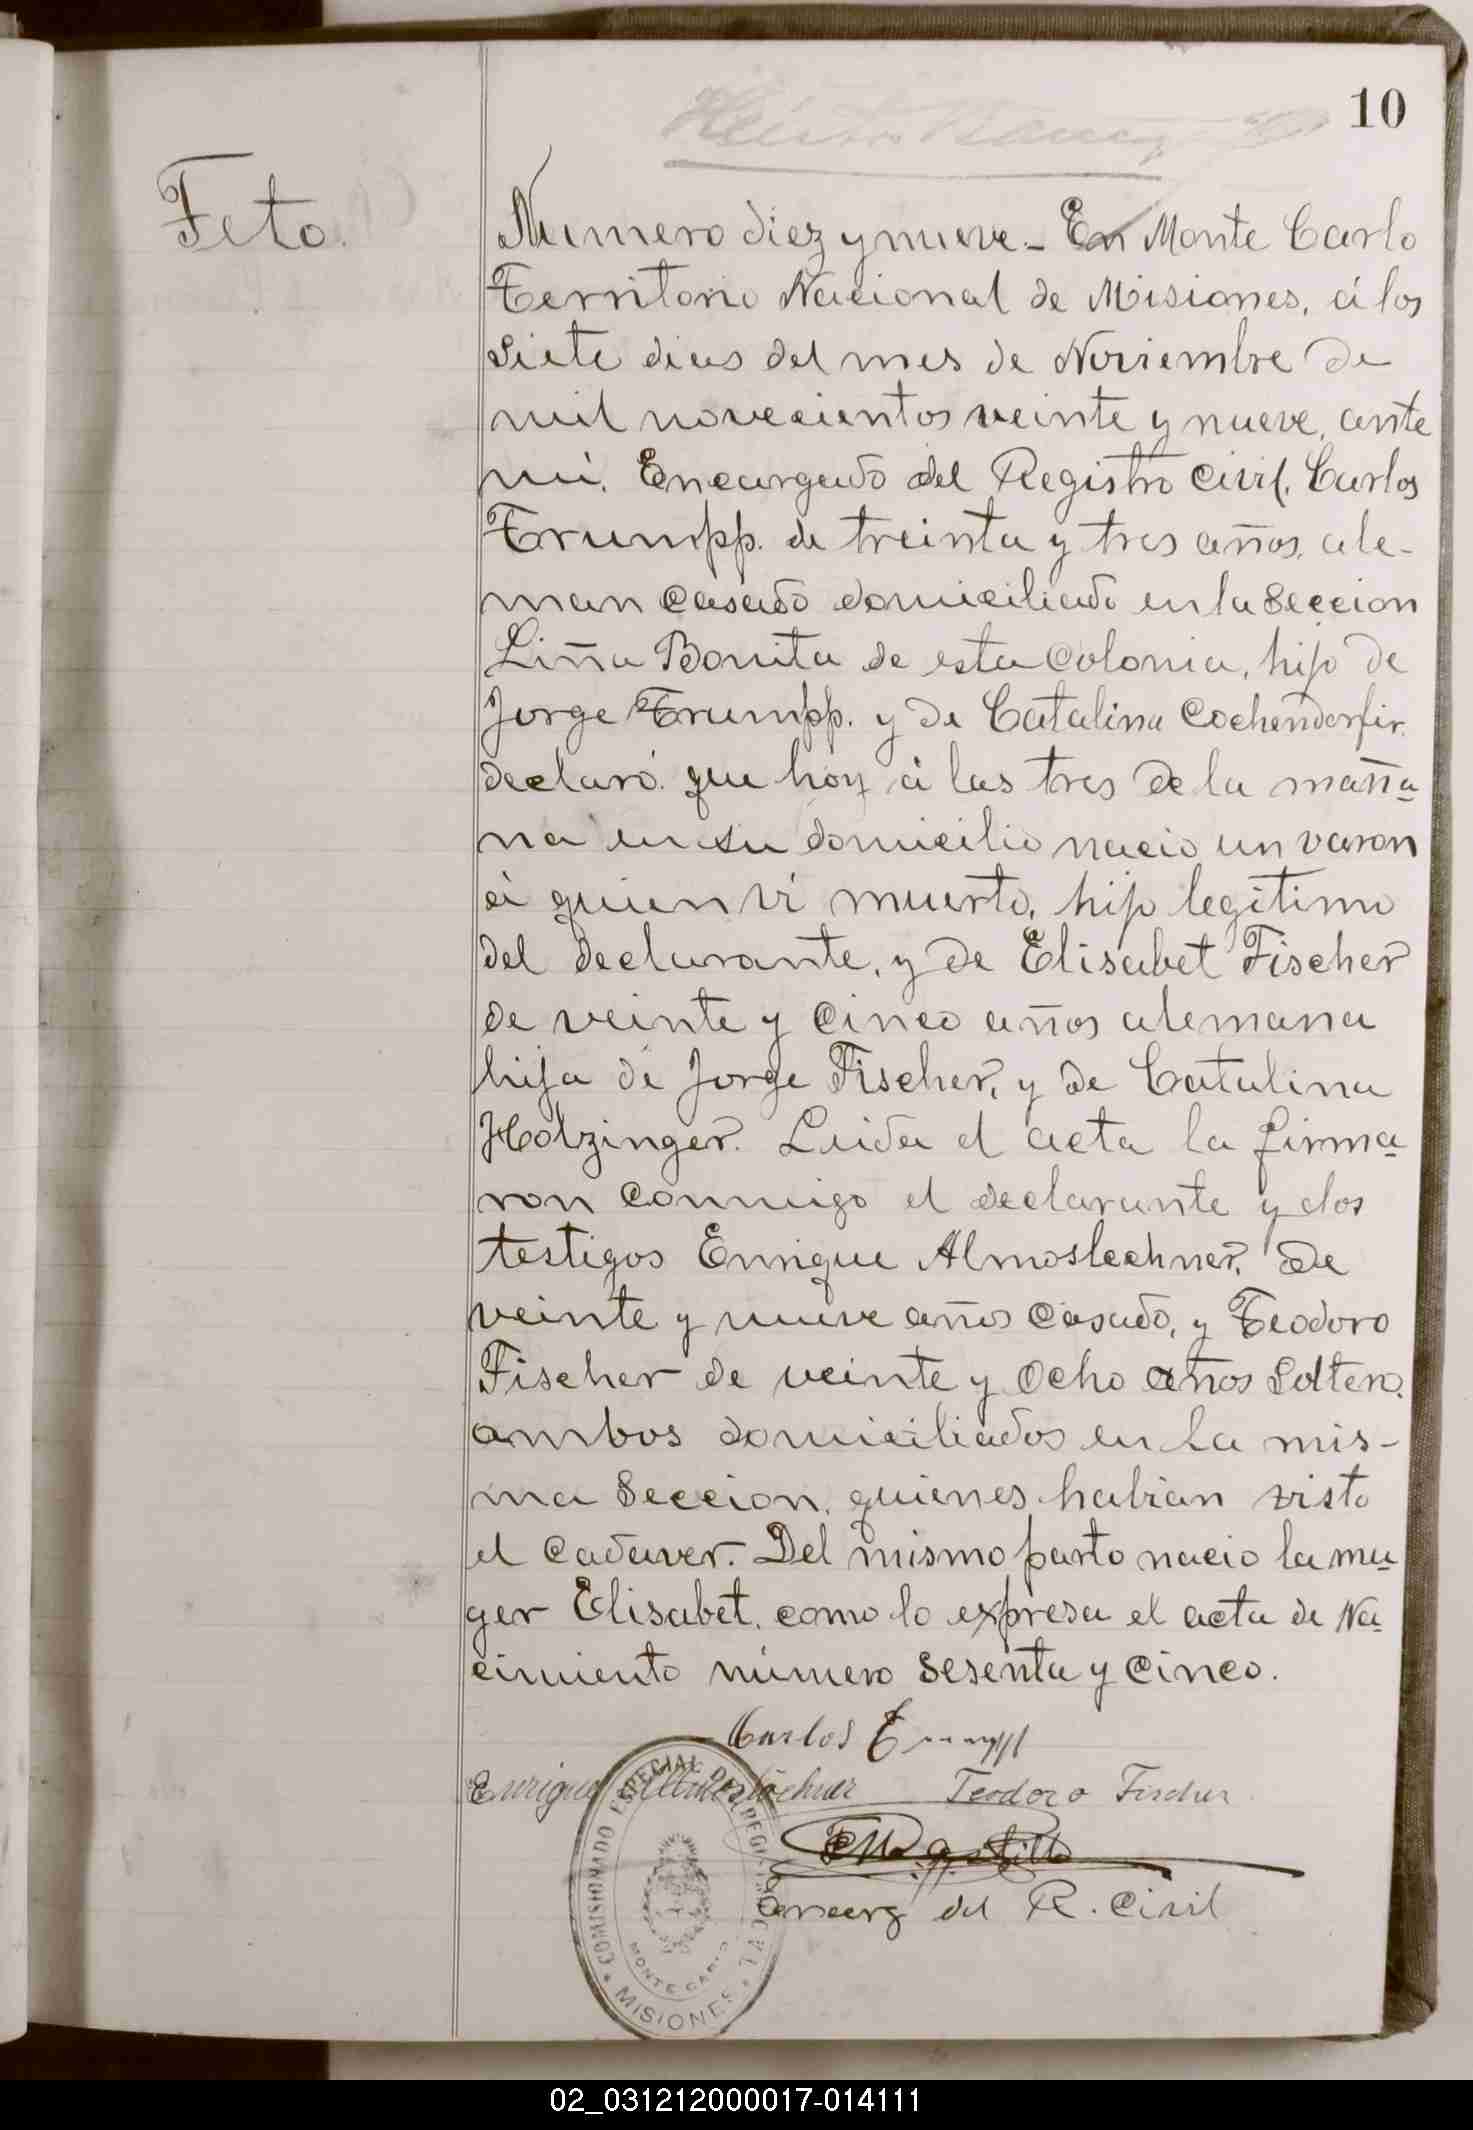 10
Feto.
Numero diez y nueve - En Monte Carlo
Territorio Nacional de Misiones, á los
siete dias del mes de Noviembre de
mil novecientos veinte y nueve, ante
mi, Encargado del Registro Civil, Carlos
Trumpp. de treinta y tres años, ale-
man casado domiciliado en la Seccion
Liña Bonita de esta Colonia, hijo de
Jorge Trumpp. y de Catalina Cochendorfir.
declaró. que hoy á las tres de la maña-
na en su domicilio nacio un varon
á quien ví muerto, hijo legítimo
del declarante, y de Elisabet Fischer
de veinte y cinco años alemana
hija de Jorge Fischer, y de Catalina
Holzinger. Leida el acta la firma-
ron conmigo el declarante y dos
testigos Enrique Almoslechner, de
veinte y nueve años casado, y Teodoro
Fischer de veinte y ocho años Soltero,
ambos domiciliados en la mis-
ma Seccion, quienes habian visto
el cadaver. Del mismo parto nacio la mu-
ger Elisabet, como lo expresa el acta de Na-
cimiento número sesenta y cinco.
Carlos Trumpp
Enrique Almoslechner Teodoro Fischer
Encarg del R. Civil
COMISIONADO ESPECIAL DEL REGISTRO CIVIL
MONTE CARLO
MISIONES
02_031212000017-014111